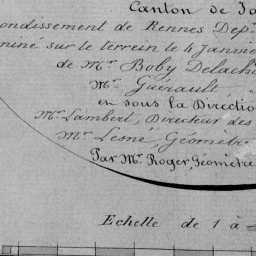 Canton de Ja
ondissement de Rennes Dep.t
miné sur le terrein le 4 Janvie
de Mr. Boby Delach
Mr. Guérault
en sous la Directio
Mr. Lambert, Directeur des
Mr. Lesné, Géomètre
Par Mr. Roger, Géomètre
Echelle de 1 à